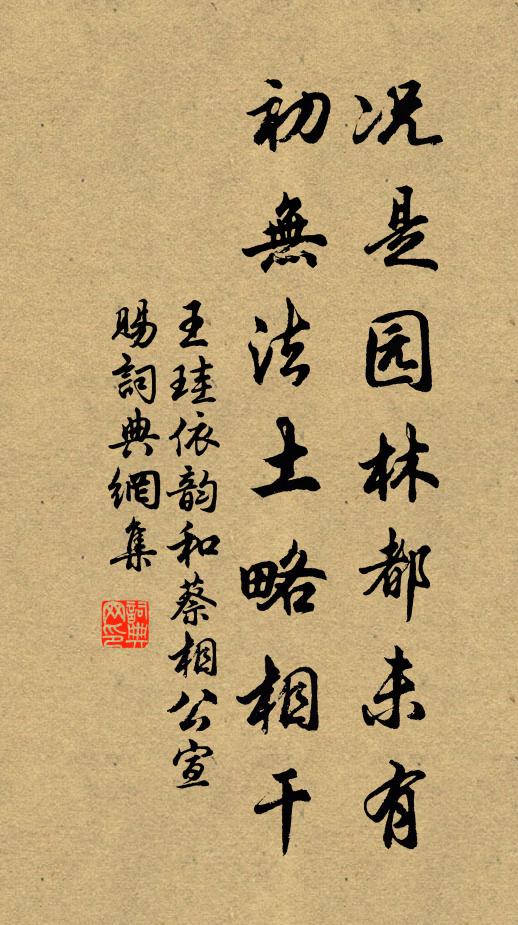 况是园林都未有
初無法土略相干
王珪依韵和蔡相公宣
賜詞典網集
詞典
网印